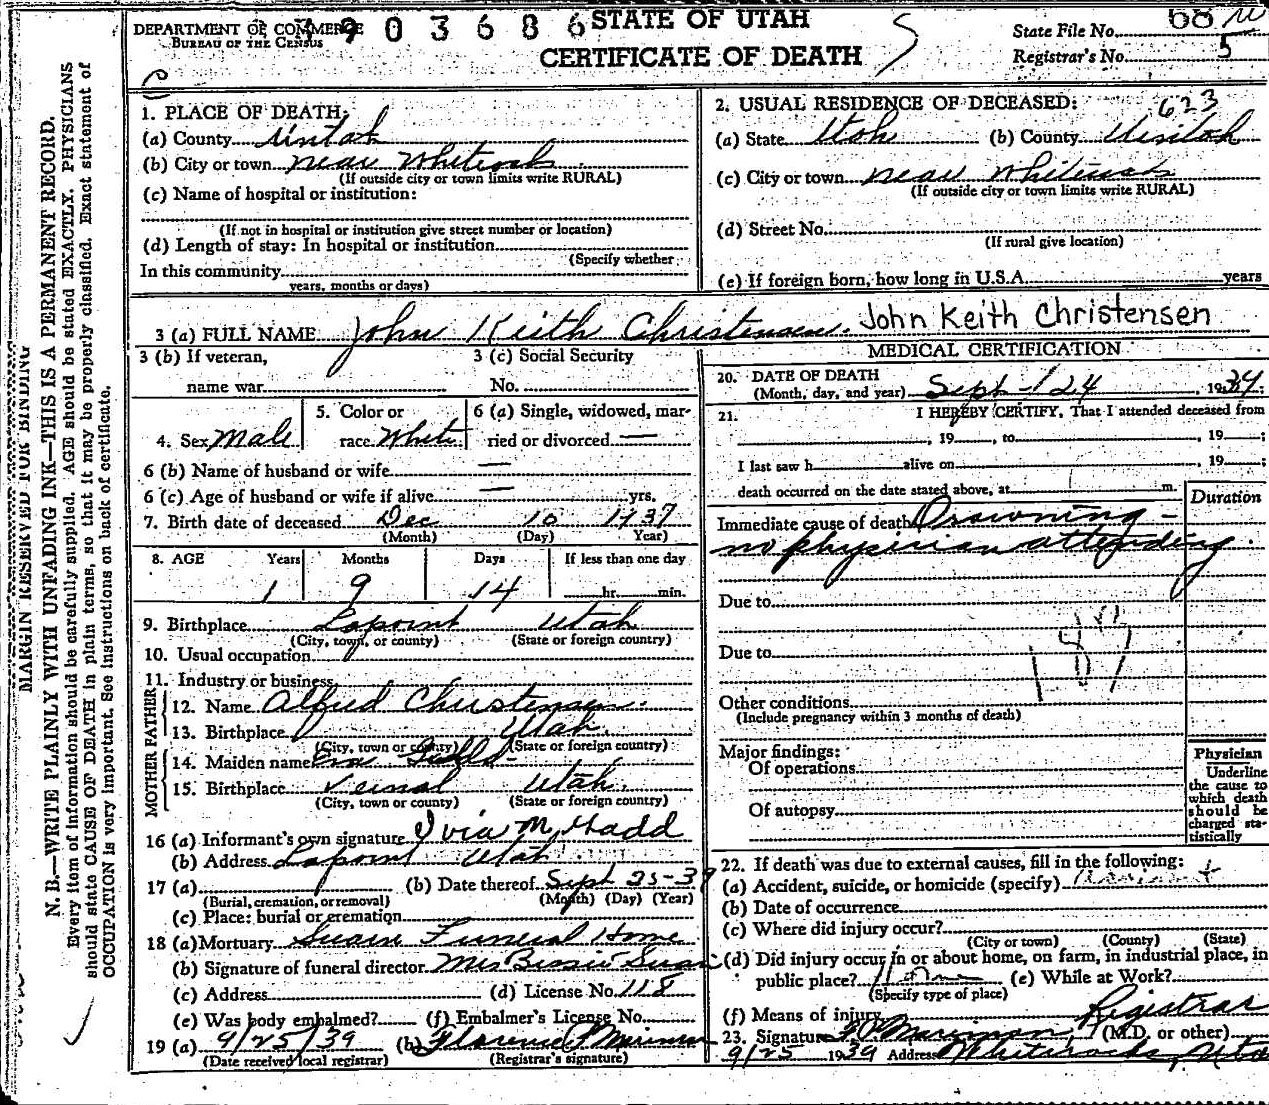 DEPARTMENT OF COMMERCE
BUREAU OF THE CENSUS
3903686
STATE OF UTAH
CERTIFICATE OF DEATH
State File No. 68
Registrar's No. 5
MARGIN RESERVED FOR BINDING
N. B.—WRITE PLAINLY WITH UNFADING INK—THIS IS A PERMANENT RECORD.
Every item of information should be carefully supplied. AGE should be stated EXACTLY. PHYSICIANS
should state CAUSE OF DEATH in plain terms, so that it may be properly classified. Exact statement of
OCCUPATION is very important. See instructions on back of certificate.
1. PLACE OF DEATH:
(a) County Uintah
(b) City or town near Whiterocks
(If outside city or town limits write RURAL)
(c) Name of hospital or institution:
(If not in hospital or institution give street number or location)
(d) Length of stay: In hospital or institution
(Specify whether
In this community
years, months or days)
2. USUAL RESIDENCE OF DECEASED:
623
(a) State Utah (b) County Uintah
(c) City or town near Whiterocks
(If outside city or town limits write RURAL)
(d) Street No.
(If rural give location)
(e) If foreign born, how long in U.S.A. years
3 (a) FULL NAME John Keith Christensen. John Keith Christensen
3 (b) If veteran,
name war
3 (c) Social Security
No.
4. Sex Male
5. Color or
race White
6 (a) Single, widowed, mar-
ried or divorced —
6 (b) Name of husband or wife —
6 (c) Age of husband or wife if alive — yrs.
7. Birth date of deceased Dec 10 1937
(Month) (Day) Year)
8. AGE Years Months Days If less than one day
1 9 14 hr. min.
9. Birthplace Lapoint Utah
(City, town, or county) (State or foreign country)
10. Usual occupation
11. Industry or business
FATHER
12. Name Alfred Christensen
13. Birthplace Utah.
(City, town or county) (State or foreign country)
MOTHER
14. Maiden name Eva
15. Birthplace Vernal Utah.
(City, town or county) (State or foreign country)
16 (a) Informant's own signature Ivia M Hadd
(b) Address Lapoint Utah
17 (a) (b) Date thereof Sept 25-39
(Burial, cremation, or removal) (Month) (Day) (Year)
(c) Place: burial or cremation
18 (a) Mortuary Swain Funeral Home
(b) Signature of funeral director Mrs Bessie Swain
(c) Address (d) License No. 118
(e) Was body embalmed? (f) Embalmer's License No.
19 (a) 9/25/39 (b) Florence P Marimon
(Date received local registrar) (Registrar's signature)
MEDICAL CERTIFICATION
20. DATE OF DEATH
(Month, day, and year) Sept 24, 19
21. I HEREBY CERTIFY, That I attended deceased from
, 19 , to , 19 ;
I last saw h alive on , 19 ;
death occurred on the date stated above, at m.
Duration
Immediate cause of death Drowning -
no physician attending
Due to
Due to
187
Other conditions
(Include pregnancy within 3 months of death)
Major findings:
Of operations
Of autopsy
Physician
Underline
the cause to
which death
should be
charged sta-
tistically
22. If death was due to external causes, fill in the following:
(a) Accident, suicide, or homicide (specify) Accident
(b) Date of occurrence
(c) Where did injury occur?
(City or town) (County) (State)
(d) Did injury occur in or about home, on farm, in industrial place, in
public place? Home (e) While at Work?
(Specify type of place)
(f) Means of injury
Registrar
23. Signature F P Marimon (M.D. or other)
9/25 1939 Address Whiterocks, Utah